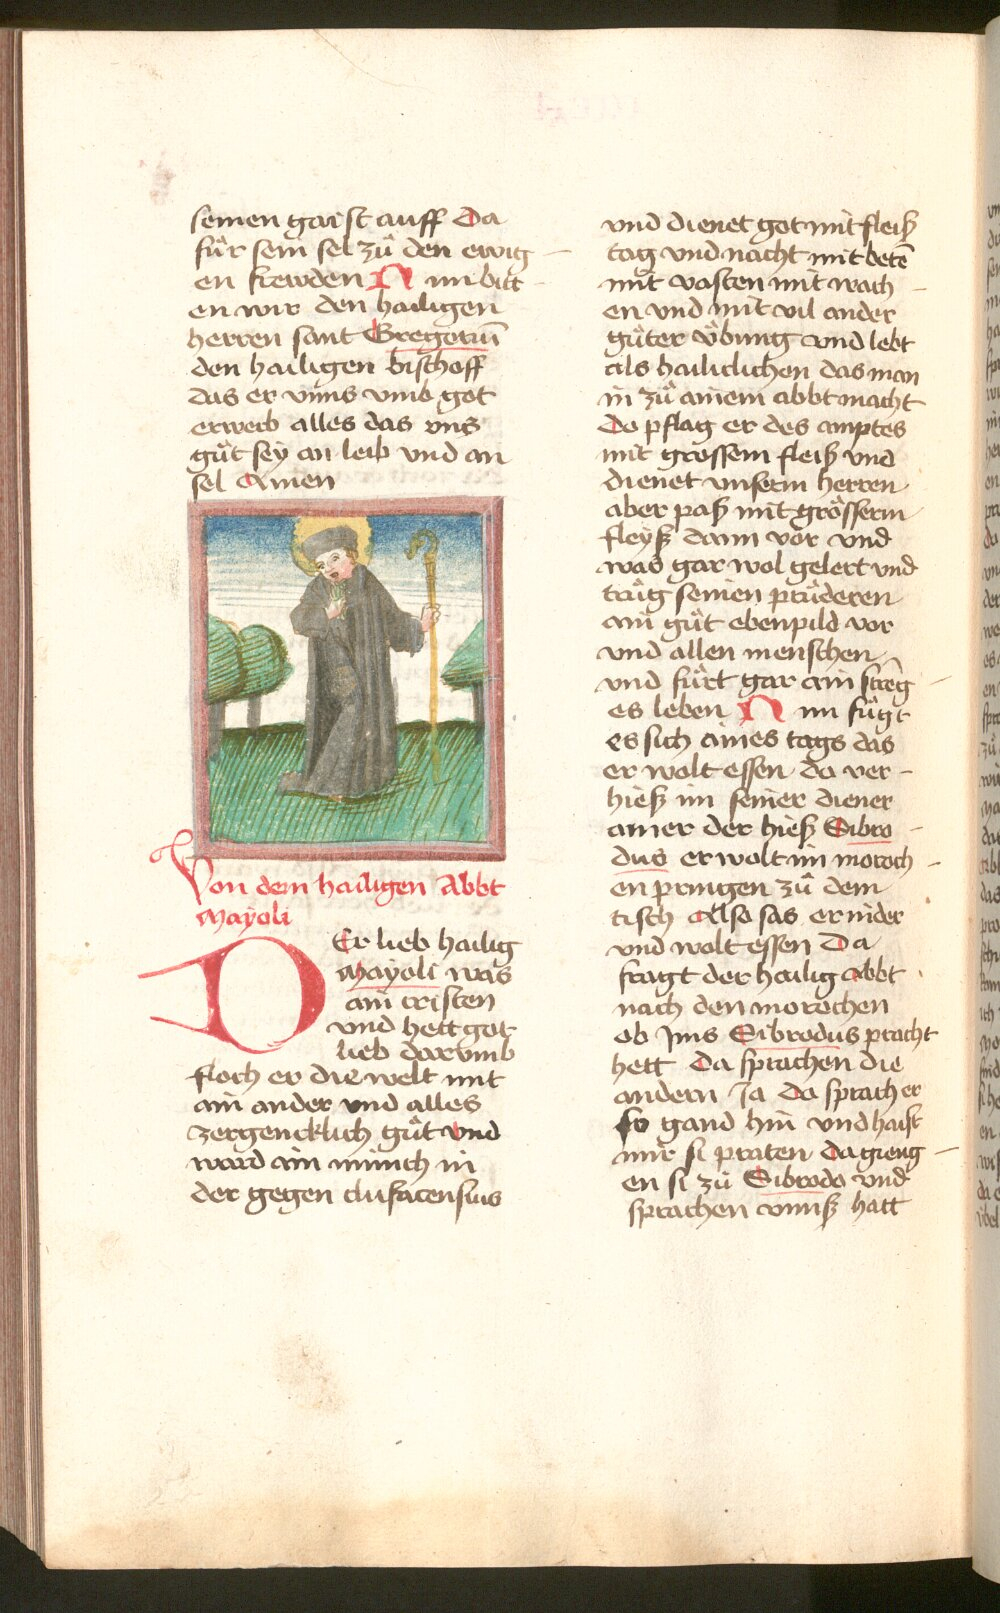 seinen gaist auff Da
fuͤr sein sel zuͦ den ewig
en frewden Nun bitt
en wir den hailigen
herren sant Gregoriū
den hailigen bischoff
das er vnns vmb got
erwerb alles das vns
guͦt sey an leib vnd an
sel Amen
Von dem hailigen Abbt
Mayoli
DEr lieb hailig
Mayoli was
ain cristen
vnd hett got
lieb darumb
floch er die welt mit
ain ander vnd alles
zergencklich guͦt vnd
ward ain münch in
der gegen clusacensius
vnd dienet got mit fleiß
tag vnd nacht mit betē
mit vasten mit wach
en vnd mit vil ander
guͦter vͤbung vnd lebt
als hailiclichen das man
in zuͦ ainem abbt macht
Do pflag er des amptes
mit grossem fleiß vnd
dienet vnserm herren
aber paß mit groͤsserm
fleyß dann vor vnd
was gar wol gelert vnd
truͦg seinen pruͤderen
ain guͦt ebenpild vor
vnd allen menschen
vnd fuͤrt gar ain strēg
es leben Nun fuͤgt
es sich aines tags das
er wolt essen do ver-
hieß im seiner diener
ainer der hieß Sibro
dus er wolt im moroch
en pringen zuͦ dem
tisch Also sas er nider
vnd wolt essen Da
fragt der heilig abbt
nach den morochen
ob Ims Sibrodus pracht
hett Da sprachen die
andern Ja da sprach er
so gand hin vnd haist
mir si praten Da gieng
en si zuͦ Sibrodo vnd
sprachen vnnß hatt